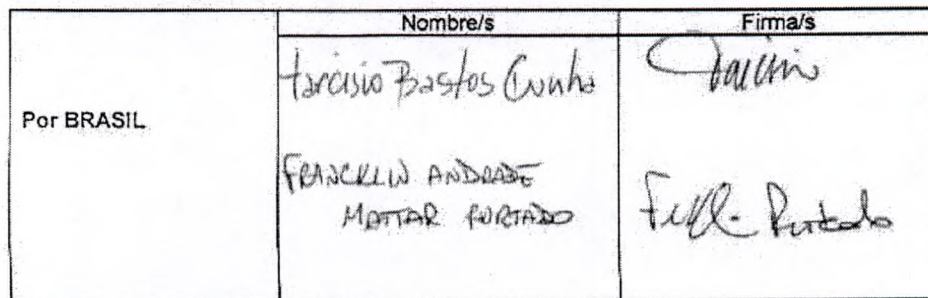 Nombre/s Firma/s
Por BRASIL
Tarcisio Bastos Cunha
FRANCKLIN ANDRADE
MATTAR FURTADO
Furtado